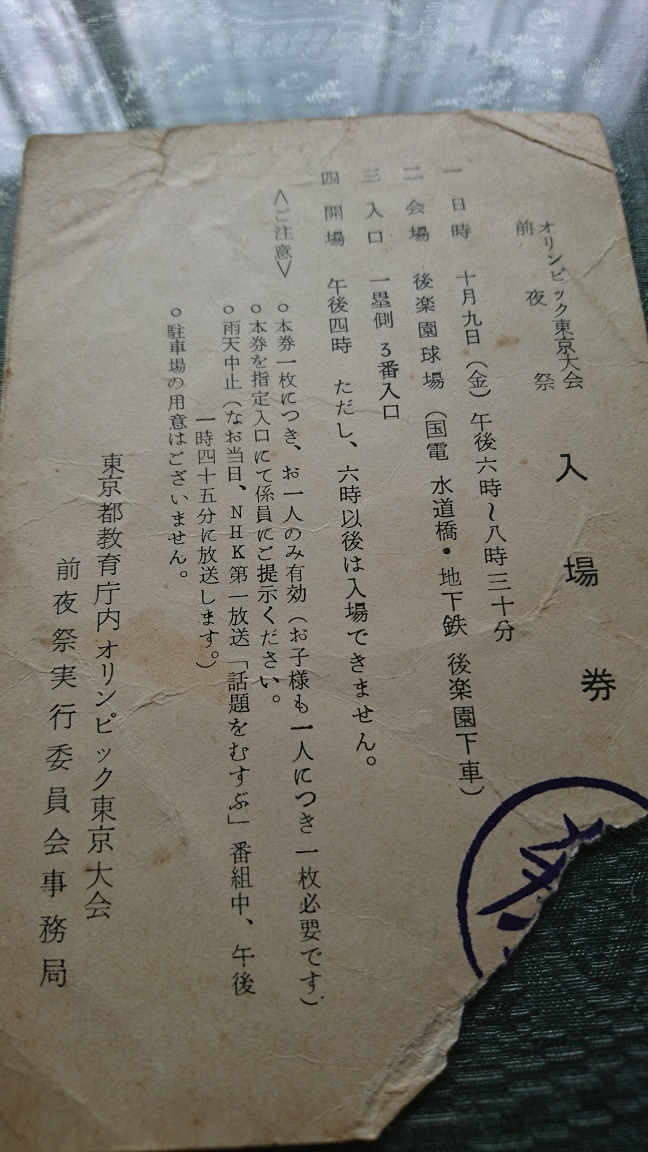 オリンピック東京大会
前夜祭
入場券
一 日時 十月九日(金)午後六時~八時三十分
二 会場 後楽園球場(国電 水道橋・地下鉄 後楽園下車)
三 入口 一塁側 3番入口
四 開場 午後四時 ただし、六時以後は入場できません。
<ご注意>
○本券一枚につき、お一人のみ有効(お子様も一人につき一枚必要です)
○本券を指定入口にて係員にご提示ください。
○雨天中止(なお当日、NHK第一放送「話題をむすぶ」番組中、午後
一時四十五分に放送します。)
○駐車場の用意はございません。
東京都教育庁内オリンピック東京大会
前夜祭実行委員会事務局